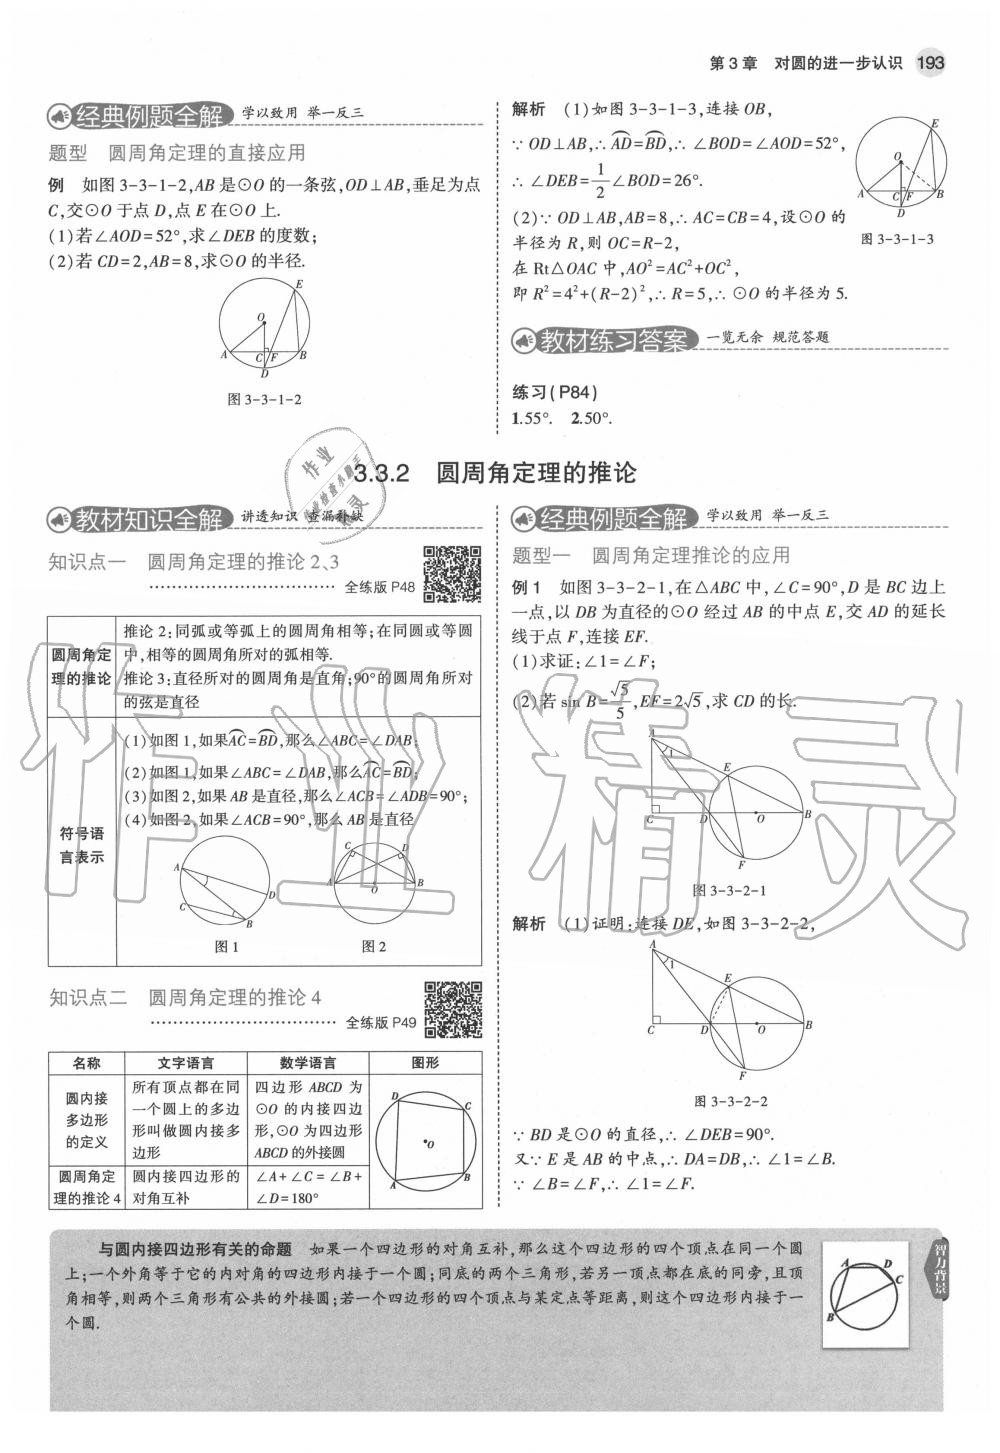 第3章 对圆的进一步认识 193
经典例题全解 学以致用 举一反三
题型 圆周角定理的直接应用
例 如图3-3-1-2,AB是⊙O的一条弦,OD⊥AB,垂足为点
C,交⊙O于点D,点E在⊙O上.
(1)若∠AOD=52°,求∠DEB的度数;
(2)若CD=2,AB=8,求⊙O的半径.
E
O
A C F B
D
图3-3-1-2
解析 (1)如图3-3-1-3,连接OB,
∵OD⊥AB,∴AD⌒=BD⌒,∴∠BOD=∠AOD=52°,
∴∠DEB=1/2∠BOD=26°.
(2)∵OD⊥AB,AB=8,∴AC=CB=4,设⊙O的
半径为R,则OC=R-2,
在Rt△OAC中,AO²=AC²+OC²,
即R²=4²+(R-2)²,∴R=5,∴⊙O的半径为5.
E
O
A C F B
D
图3-3-1-3
教材练习答案 一览无余 规范答题
练习(P84)
1.55°. 2.50°.
3.3.2 圆周角定理的推论
教材知识全解 讲透知识 查漏补缺
知识点一 圆周角定理的推论2、3
全练版P48
圆周角定
理的推论
推论2:同弧或等弧上的圆周角相等;在同圆或等圆
中,相等的圆周角所对的弧相等.
推论3:直径所对的圆周角是直角;90°的圆周角所对
的弦是直径
符号语
言表示
(1)如图1,如果AC⌒=BD⌒,那么∠ABC=∠DAB;
(2)如图1,如果∠ABC=∠DAB,那么AC⌒=BD⌒;
(3)如图2,如果AB是直径,那么∠ACB=∠ADB=90°;
(4)如图2,如果∠ACB=90°,那么AB是直径
A
D
C
B
图1
C D
A O B
图2
知识点二 圆周角定理的推论4
全练版P49
名称 文字语言 数学语言 图形
圆内接
多边形
的定义
所有顶点都在同
一个圆上的多边
形叫做圆内接多
边形
四边形ABCD为
⊙O的内接四边
形,⊙O为四边形
ABCD的外接圆
圆周角定
理的推论4
圆内接四边形的
对角互补
∠A+∠C=∠B+
∠D=180°
D
C
O
A B
经典例题全解 学以致用 举一反三
题型一 圆周角定理推论的应用
例1 如图3-3-2-1,在△ABC中,∠C=90°,D是BC边上
一点,以DB为直径的⊙O经过AB的中点E,交AD的延长
线于点F,连接EF.
(1)求证:∠1=∠F;
(2)若sin B=√5/5,EF=2√5,求CD的长.
A
1
E
C D O B
F
图3-3-2-1
解析 (1)证明:连接DE,如图3-3-2-2,
A
1
E
C D O B
F
图3-3-2-2
∵BD是⊙O的直径,∴∠DEB=90°.
又∵E是AB的中点,∴DA=DB,∴∠1=∠B.
∵∠B=∠F,∴∠1=∠F.
与圆内接四边形有关的命题 如果一个四边形的对角互补,那么这个四边形的四个顶点在同一个圆
上;一个外角等于它的内对角的四边形内接于一个圆;同底的两个三角形,若另一顶点都在底的同旁,且顶
角相等,则两个三角形有公共的外接圆;若一个四边形的四个顶点与某定点等距离,则这个四边形内接于一
个圆.
A D
C
B
智力背景
作业精灵